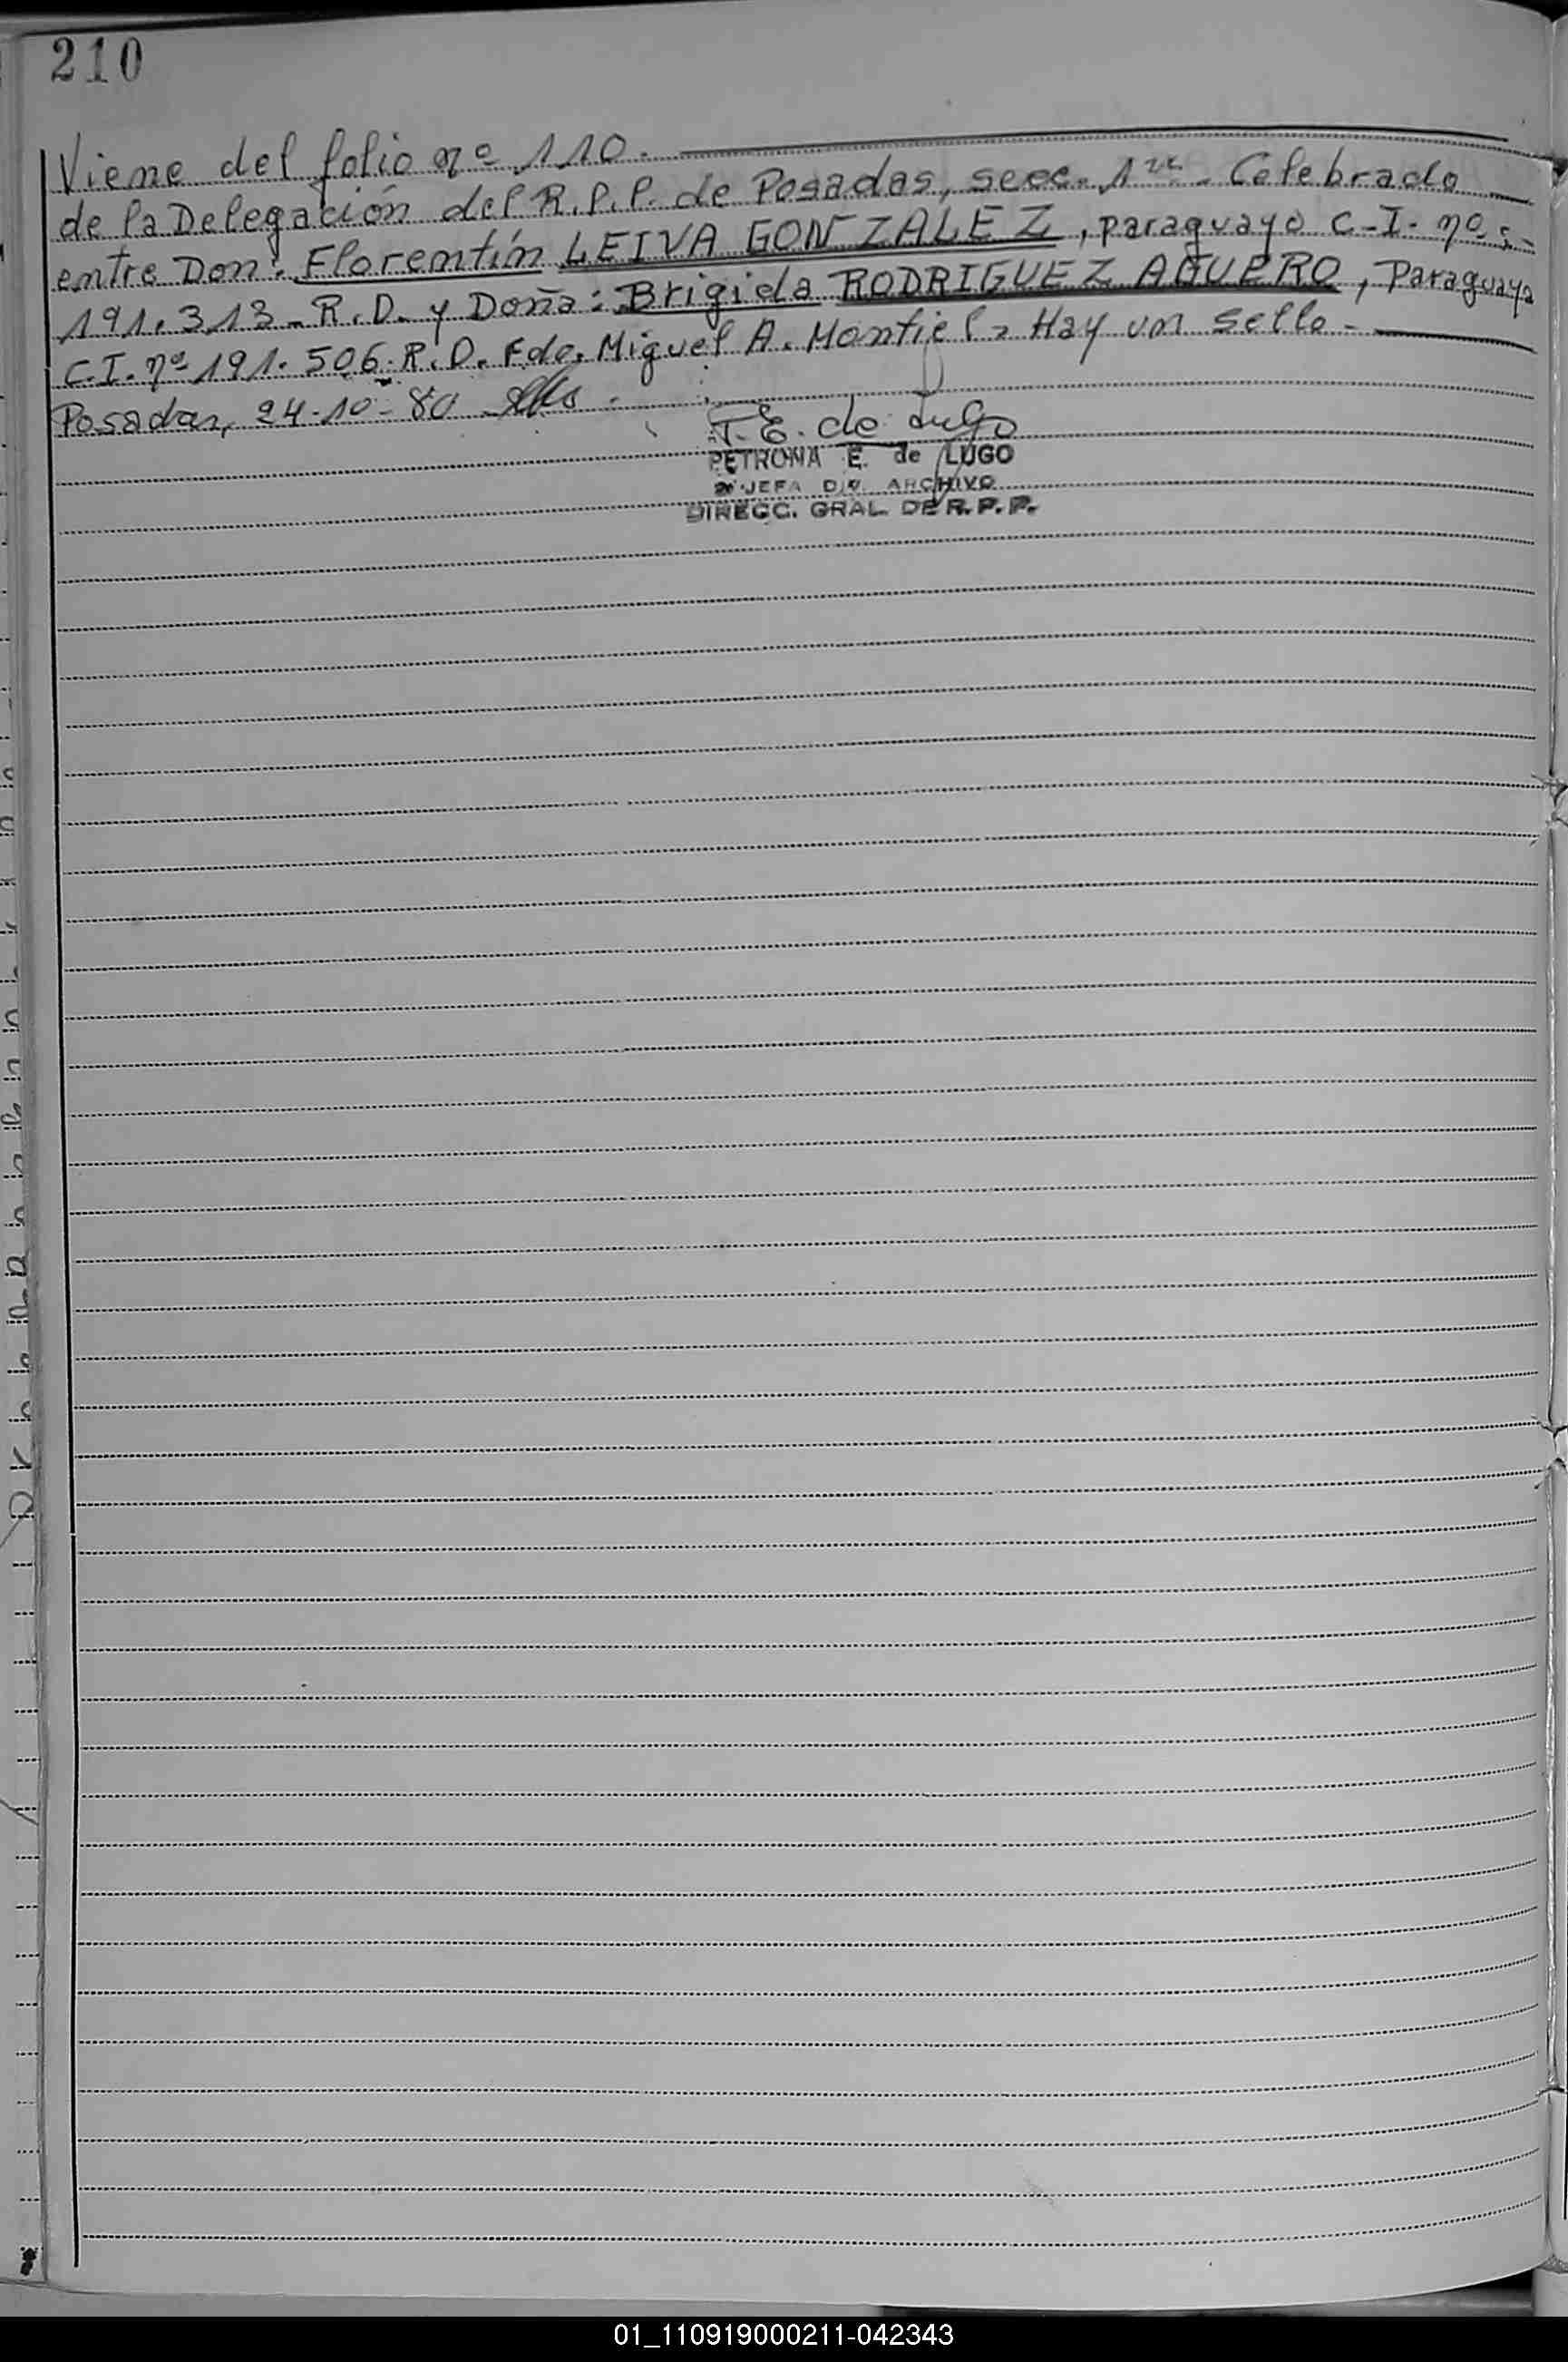 210
Viene del folio nº 110.
de la Delegación del R.P.P. de Posadas, secc. 1ra. Celebrado
entre Don: Florentín LEIVA GONZALEZ, paraguayo C.I. nº
191.313 - R.D. y Doña: Brigida RODRIGUEZ AGUERO, Paraguaya
C.I. nº 191.506. R.D. Fdo. Miguel A. Montiel - Hay un sello -
Posadas, 24-10-80
T.E. de Lugo
PETRONA E. de LUGO
JEFA DIV. ARCHIVO
DIRECC. GRAL. DE R.P.P.
01_110919000211-042343